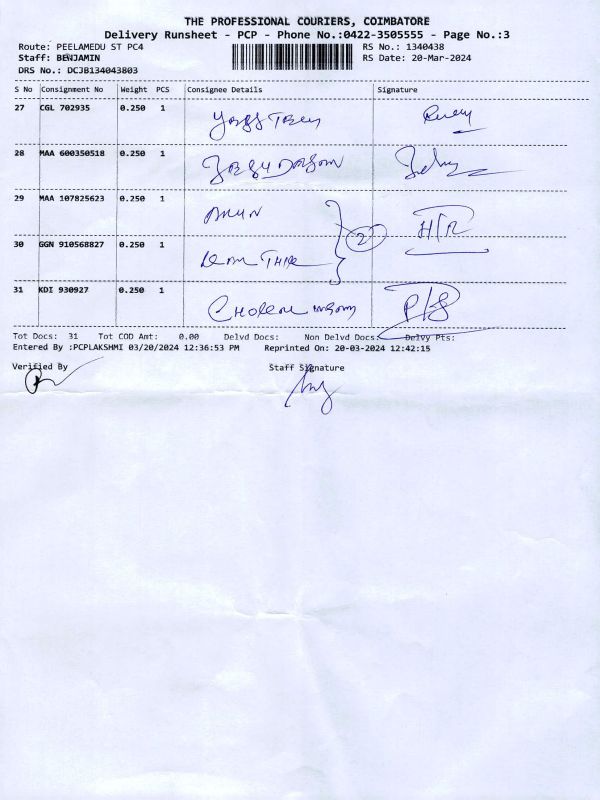 THE PROFESSIONAL COURIERS, COIMBATORE
Delivery Runsheet - PCP - Phone No.:0422-3505555 - Page No.:3
Route: PEELAMEDU ST PC4
RS No.: 1340438
Staff: BENJAMIN
RS Date: 20-Mar-2024
DRS No.: DCJB134043803
S No Consignment No Weight PCS Consignee Details Signature
27 CGL 702935 0.250 1
28 MAA 600350518 0.250 1
29 MAA 107825623 0.250 1
2
30 GGN 910568827 0.250 1
31 KDI 930927 0.250 1
Tot Docs: 31 Tot COD Amt: 0.00 Delvd Docs: Non Delvd Docs: Delvy Pts:
Entered By :PCPLAKSHMI 03/20/2024 12:36:53 PM Reprinted On: 20-03-2024 12:42:15
Verified By Staff Signature